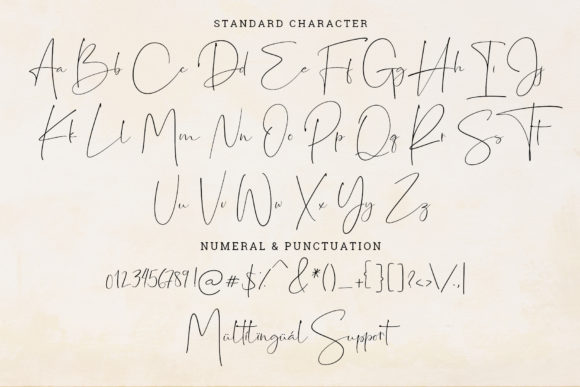 STANDARD CHARACTER
Aa Bb Cc Dd Ee Ff Gg Hh Ii Jj
Kk Ll Mm Nn Oo Pp Qq Rr Ss Tt
Uu Vv Ww Xx Yy Zz
NUMERAL & PUNCTUATION
0123456789!@#$%^&*()_+{}[]?<>\/.,|
Mültilingüál Support